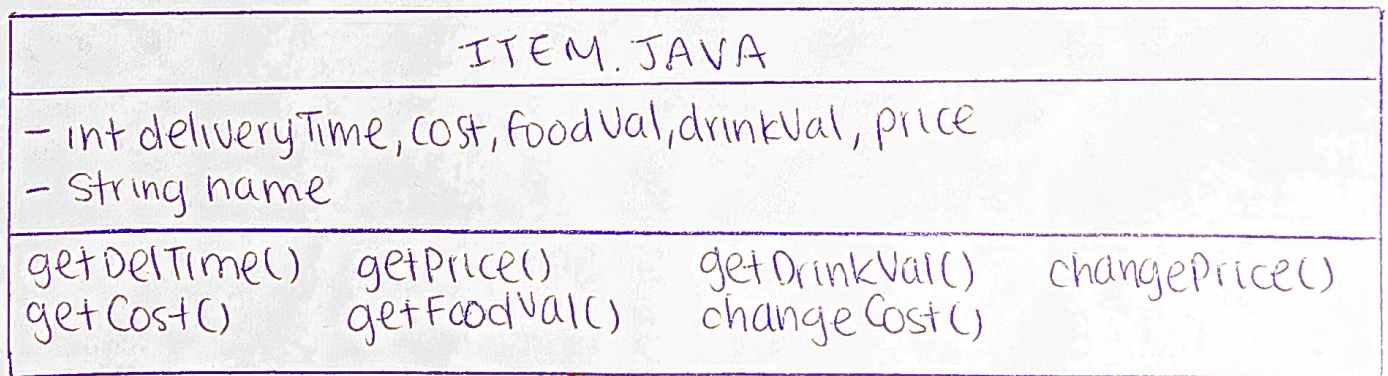 ITEM.JAVA
- int deliveryTime, cost, foodVal, drinkVal, price
- String name
getDelTime() getPrice() getDrinkVal() changePrice()
getCost() getFoodVal() changeCost()